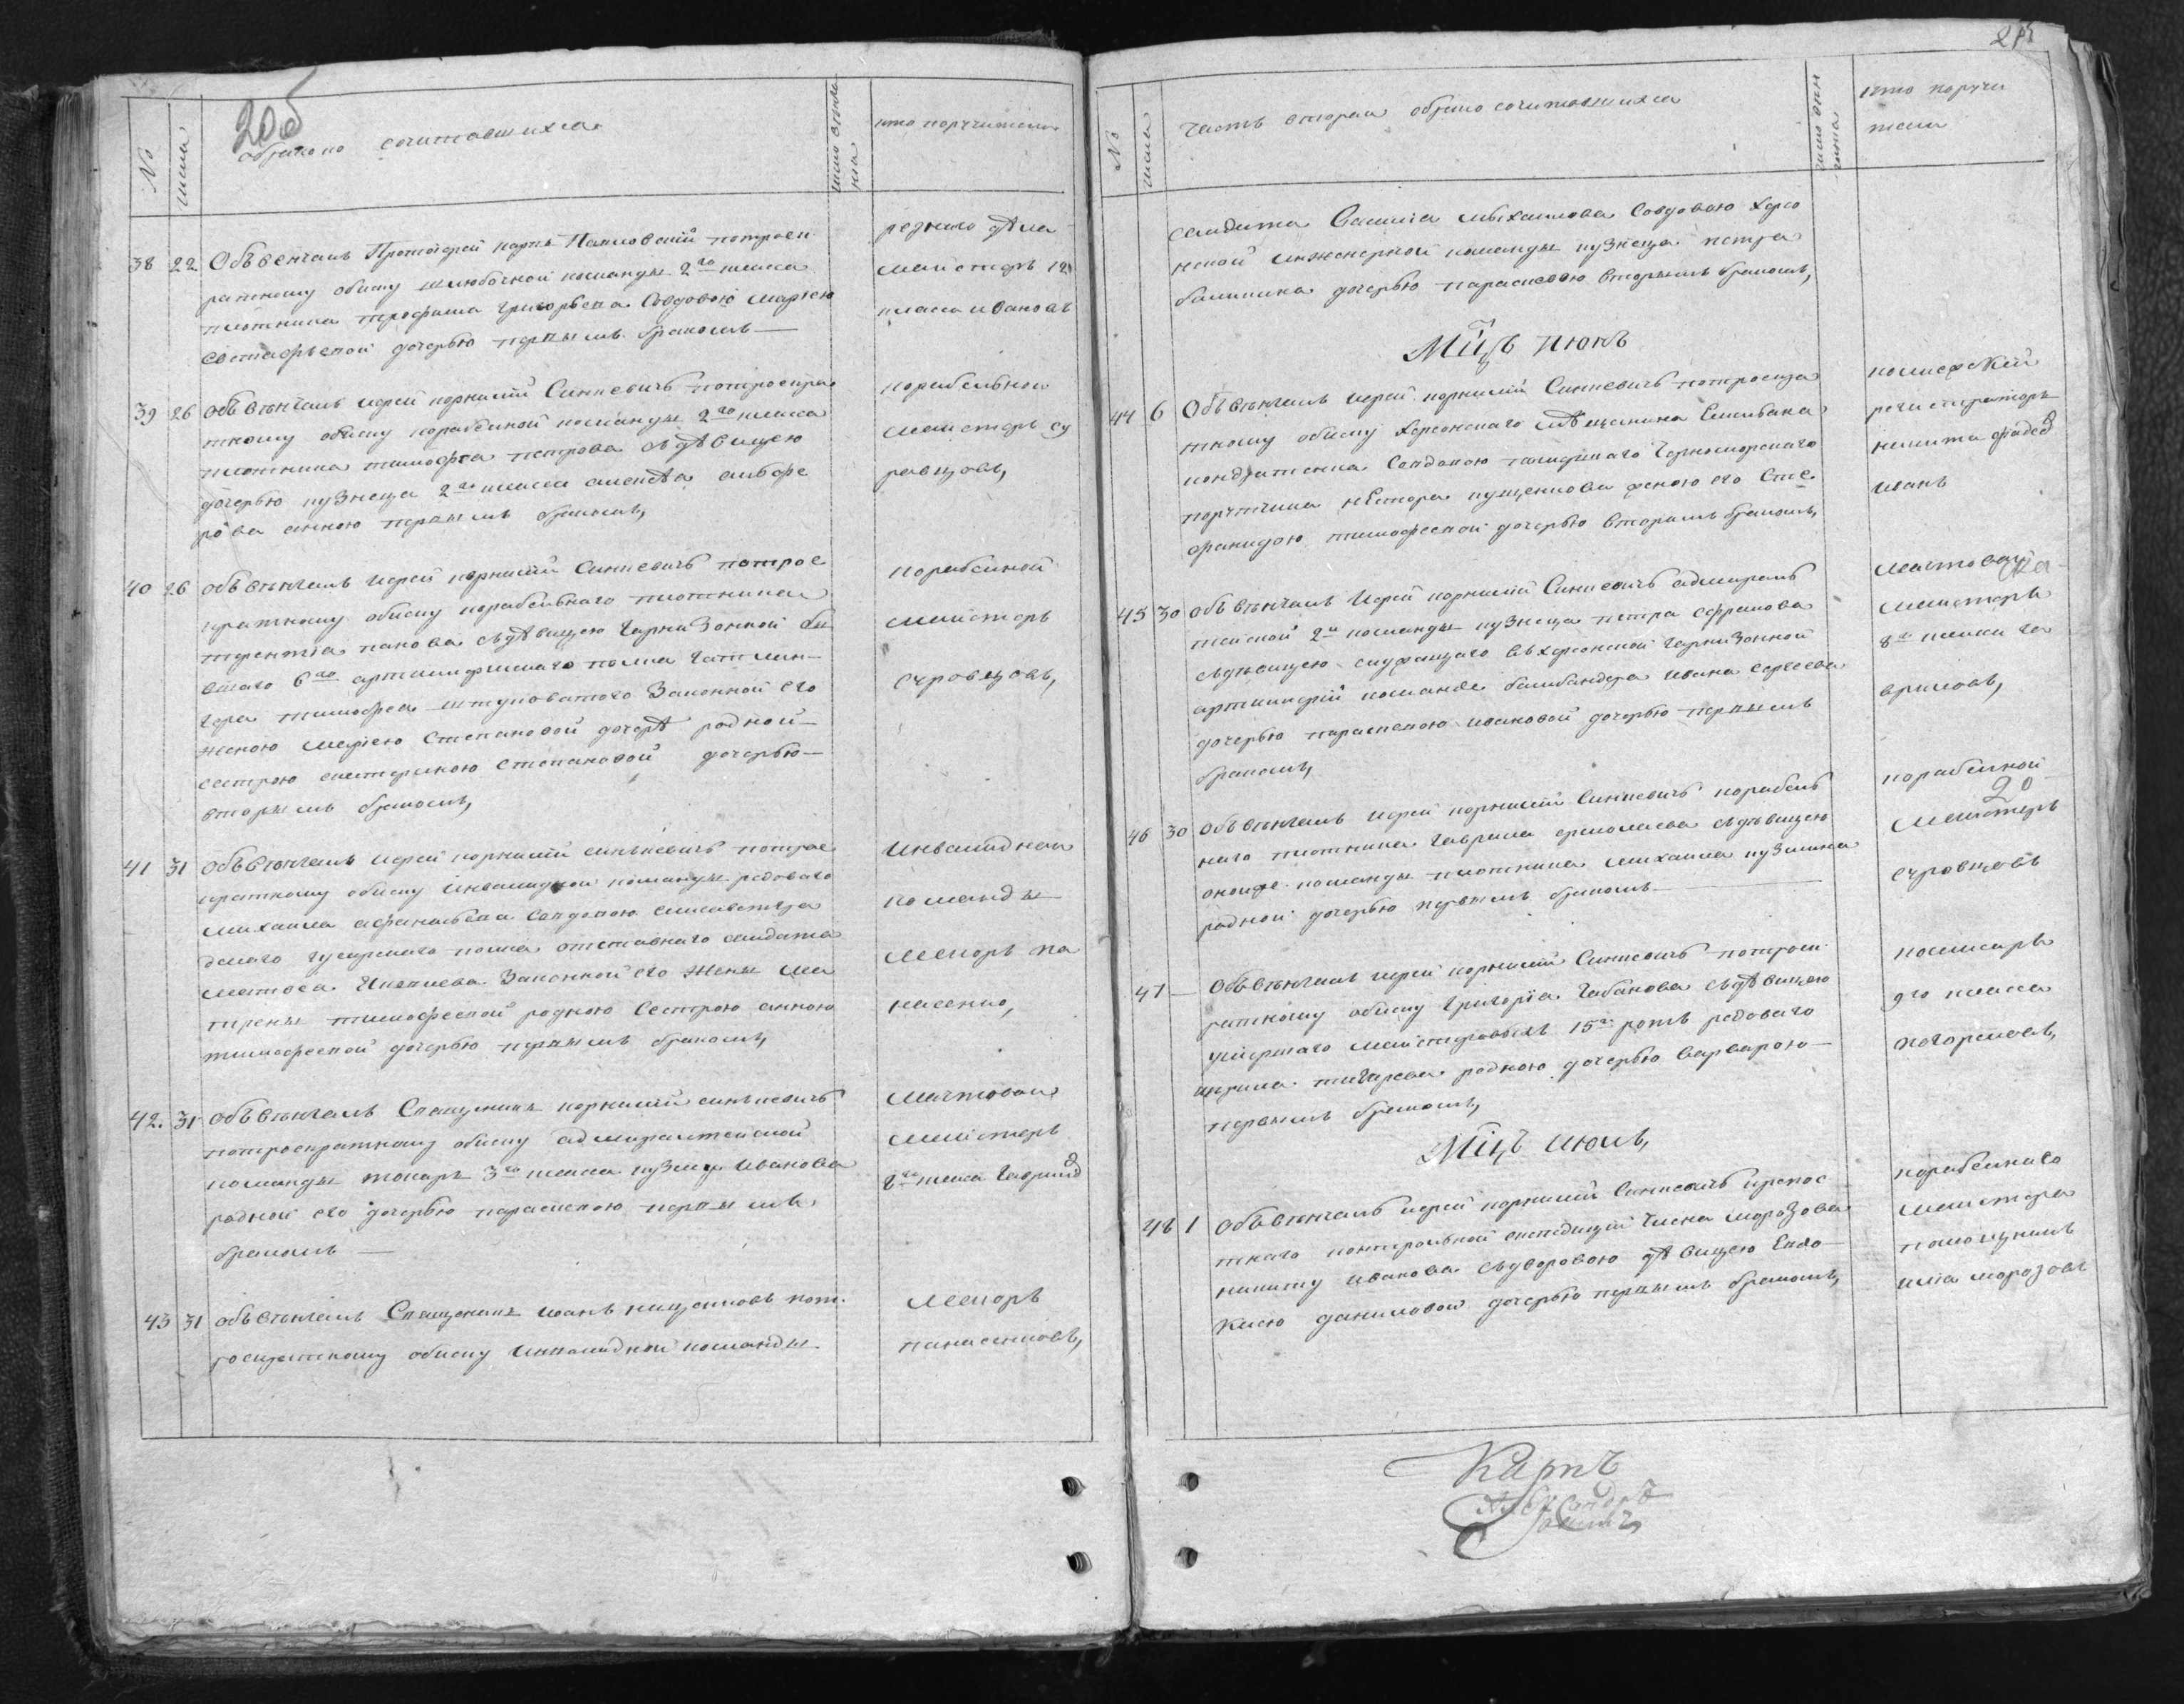 20об
№
числа
обрако сочитавшихся
кто поручители
38 22 Объвенчалъ Протоіерей Карпъ Павловскій потроек
ратному обыску шлюбочной команды 2го класа
плотника трофима григорьева Совдовою Маріею
Евстафьевой дочерью первымъ бракомъ —
резнаго дѣла
майстеръ 12
класа ивановъ
39 26 объвѣнчалъ иерей корнилій Синкевичъ потроекра
тному обыску корабелной команды 2го класа
плотника тимофея петрова съ дѣвицею
дочерью кузнеца 2го класа алексѣя алфе
рова анною первымъ бракомъ,
корабельнои
майстеръ су
ровцовъ,
40 26 объвѣнчалъ иерей корнилій Синкевичъ потрое
кратному обыску корабельнаго плотника
терентія панова съ дѣвицею Гарнизонной бы
вшаго 6го артилирискаго полка гатлан—
гера тимофея штуковатого Законной его
женою Маріею Степановой дочерѣ родной—
сестрою екатериною степановой дочерью—
вторымъ бракомъ,
корабелной
майстеръ
суровцовъ,
41 31 объвѣнчалъ иерей корнилий синькевичъ потрое
кратному обыску Инвалидной команды редоваго
михаила афанасьева Совдовою елисаветгра
дскаго гусарскаго полка отставнаго салдата
матвея Князиева Законной его жены Ма
трены тимофеевой родною Сестрою анною
тимофеевой дочерью первымъ бракомъ,
Инвалиднои
команды
Маіоръ па
насенко,
42. 31 объвѣнчалъ Священникъ корнилій синькевичъ
потроекратному обыску адмиралтейской
команды токаръ 3го класа кузму Иванова
родной его дочерью параскевою первымъ
бракомъ —
Мачтовои
майстеръ
8го класа Гаврил
43 31 объвѣнчалъ Священникъ иоанъ кищенковъ пот
роекратному обыску Инвалидной команды
Маіоръ
панасенковъ,
№
числа
часть вторая обрако сочитавшихся
кто поручи
тели
салдата Василія Михаилова Совдовою херсо
нской инженерной команды кузнеца петра
калинина дочерью параскевою вторымъ бракомъ,
Мцъ июнь
44 6 Объвѣнчалъ иерей корнилій Синкевичъ потроекра
тному обыску херсонскаго мѣщанина Емельяна
кондратенка Совдовою таможнаго Черноморскаго
поручика нестора кущенкова женою его Сте
фанидою тимофеевой дочерью вторымъ бракомъ,
колежскій
регистраторъ
никита фадѣѣ
иванъ
45 30 объвѣнчалъ иерей корнилій Синкевичъ адмирал
тейской 2й команды кузнеца петра ефремова
съ дѣвицею служащаго въ херсонской гарнизонной
артилерій команде бамбандера ивана сергеева
дочерью параскевою ивановой дочерью первымъ
бракомъ,
мачтовой
майстеръ
8го класа га
вриловъ,
46 30 объвѣнчалъ иерей корнилій Синкевичъ корабель
наго плотника гаврила ермолаева съ дѣвицею
оной же команды плотника михаила кузмина
родной дочерью первымъ бракомъ —
корабелной
20
майстеръ
суровцовъ
47 — Объвѣнчалъ иерей корнилій Синкевичъ потроек
ратному обыску григорія Чабанова съ дѣвицею
умершаго майстеровыхъ 15й ротѣ редоваго
кирила тичарева родною дочерью варварою—
первымъ бракомъ,
комисаръ
9го класа
негоревовъ,
Мцъ июль,
48 1 Объвѣнчалъ иерей корнилій Синкевичъ крепос
тнаго контрольной экспедиціи члена морозова
никиту иванова съ дворовою дѣвицею Евдо
кіею даниловой дочерью первымъ бракомъ,
корабелнаго
майстера
помощникъ
илія морозовъ
Карпъ